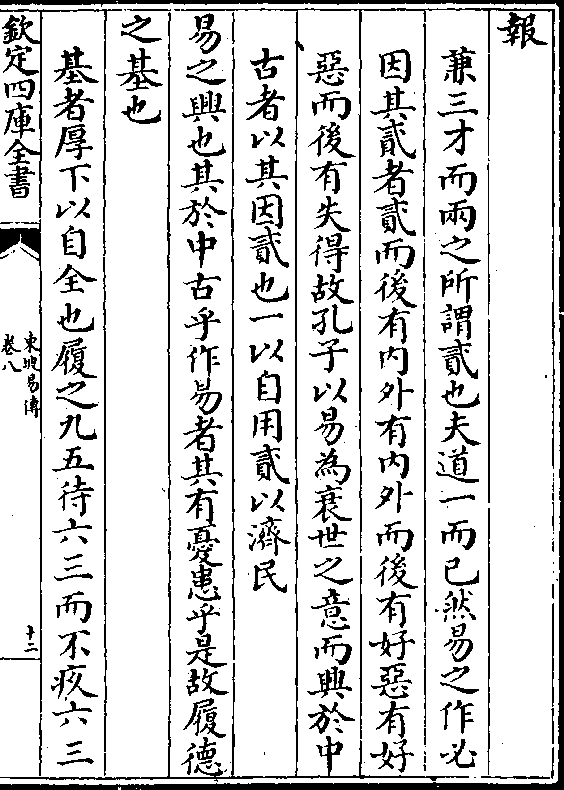 報
兼三才而兩之所謂貳也夫道一而已然易之作必
因其貳者貳而後有内外有内外而後有好惡有好
惡而後有失得故孔子以易為衰世之意而興於中
古者以其因貳也一以自用貳以濟民
易之興也其於中古乎作易者其有憂患乎是故履德
之基也
基者厚下以自全也履之九五待六三而不疚六三
欽定四庫全書
東坡易傳
卷八
十二